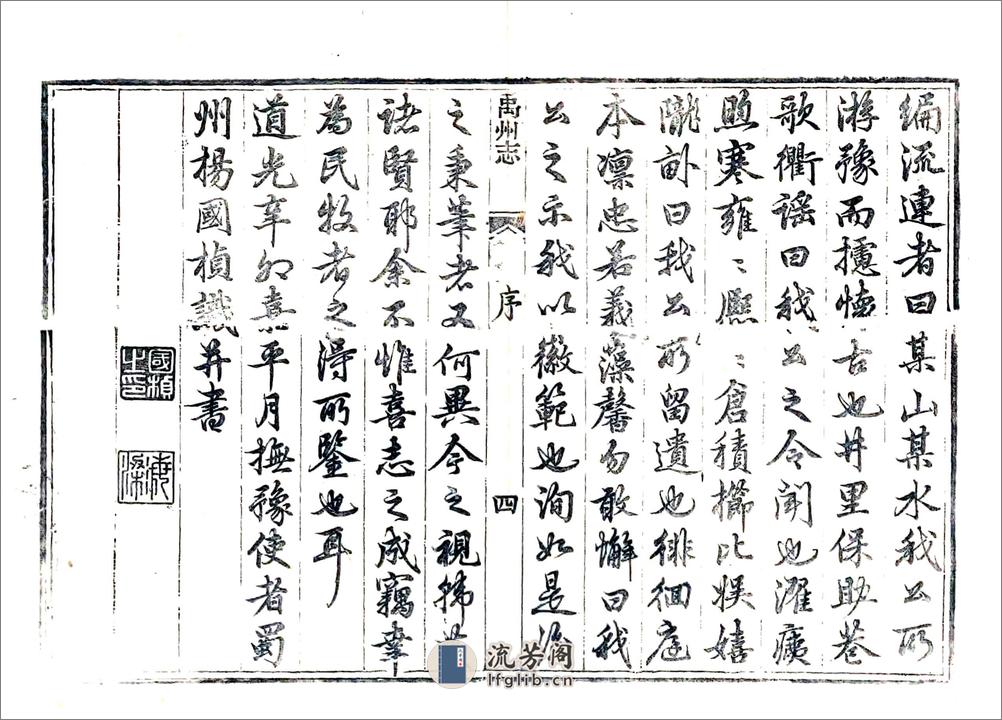 編流連者曰某山某水我公所
游豫而攄懷古也井里保助巷
歌衢謠曰我公之令聞也濯痍
煦寒雍〻熙〻倉積櫛比娛嬉
隴畝曰我公所留遺也徘徊庭
本凛忠若義藻馨勿敢懈曰我
公之示我以徽範也洵如是後
禹州志
序
四
之秉筆者又何異今之視
諸賢耶余不惟喜志之成竊幸
為民牧者之得所鑒也耳
道光辛卯嘉平月撫豫使者蜀
州楊國楨識并書
國楨之印
海梁
流芳阁
lfglib.cn